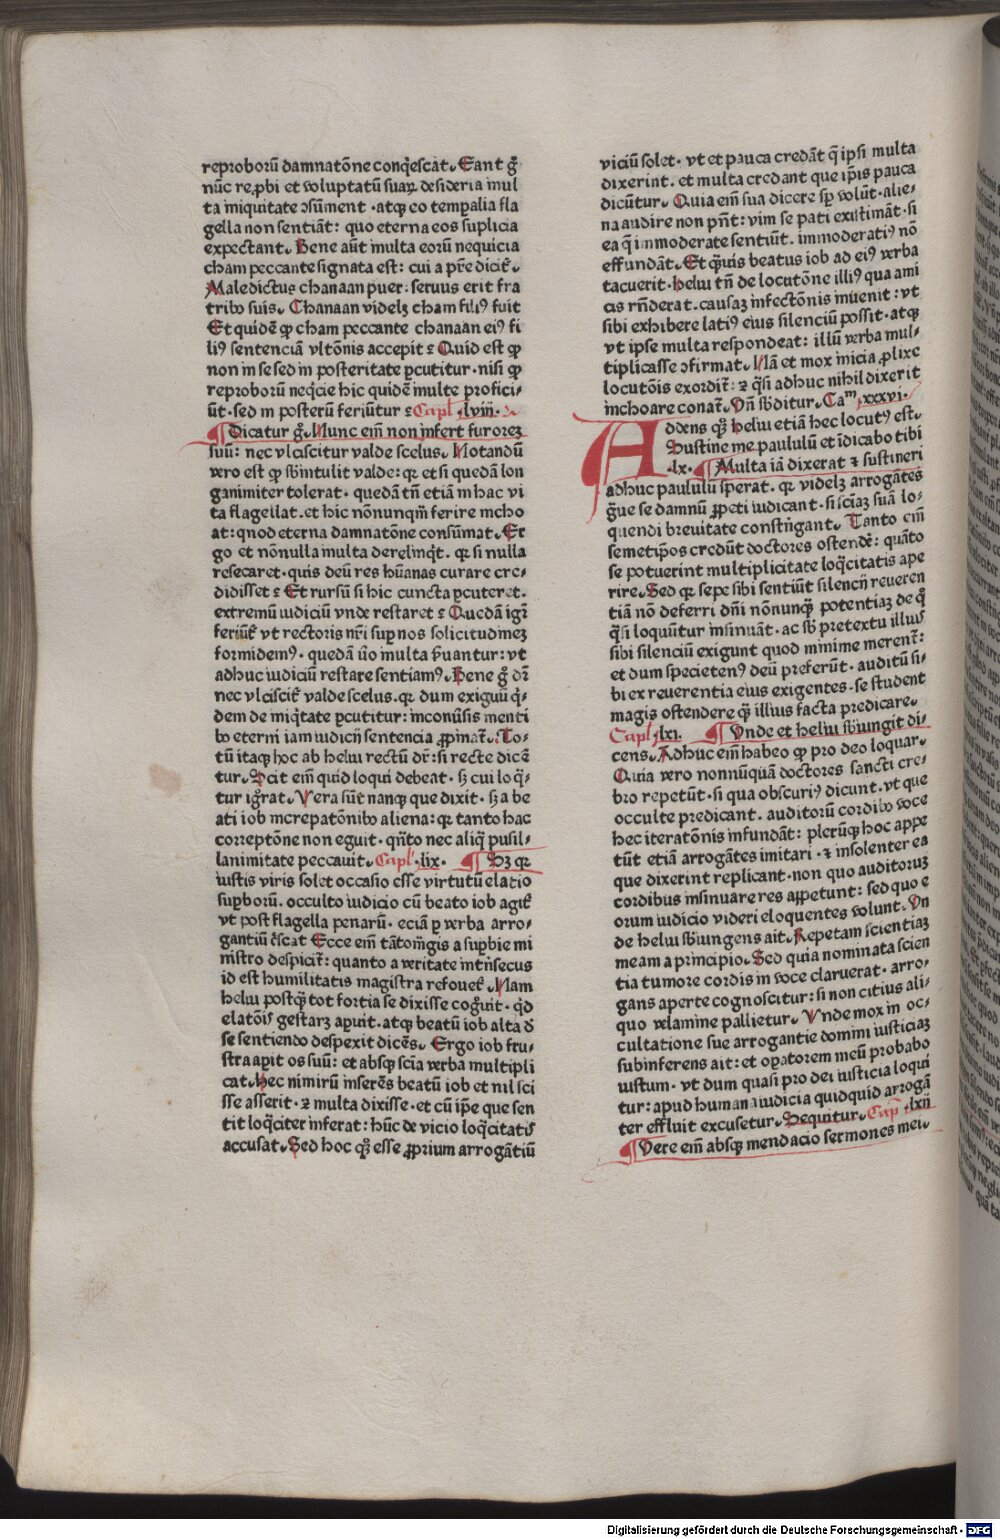 reproborū damnatōne conq̄escāt. Eant ḡ
nūc reꝓbi et voluptatū suaꝝ desideria mul
ta iniquitate ↄsūment · atqꝫ eo temꝑalia fla
gella non sentiāt: quo eterna eos suplicia
expectant. Bene aūt multa eorū nequicia
cham peccante signata est: cui a pr̄e dicit᷑.
Maledictus chanaan puer: seruus erit fra
tribꝰ suis. Chanaan videlꝫ cham filiꝰ fuit
Et quidē ꝙ cham peccante chanaan eiꝰ fi
liꝰ sentenciā vltōnis accepit ꝛ Quid est ꝙ
non in se sed in posteritate ꝑcutitur · nisi ꝙ
reproborū neq̄cie hic quidē multe profici⸗
ūt · sed in posterū feriūtur ꝛ Capl᷑ .lviij.
¶ Dicatur ḡ. Nunc em̄ non infert furoreꝫ
suū: nec vlciscitur valde scelus. Notandū
vero est ꝙ sb̄intulit valde: qꝛ et si quedā lon
ganimiter tolerat · quedā tn̄ etiā in hac vi
ta flagellat. et hic nōnunqm̄ ferire incho
at: qnod eterna damnatōne consūmat. Er
go et nōnulla multa derelinqt̄. qꝛ si nulla
resecaret · quis deū res hūanas curare cre⸗
didisset ꝛ Et rursū si hic cuncta ꝑcuteret.
extremū iudiciū vnde restaret ꝛ Quedā igr̄
feriūt᷑ vt rectoris nr̄i suꝑ nos solicitudineꝫ
formidemꝰ · quedā ūo multa ẜuantur: vt
adhuc iudiciū restare sentiamꝰ. Bene ḡ dr̄
nec vlciscit᷑ valde scelus. qꝛ dum exiguū q̄⸗
dem de iniq̄tate ꝑcutitur: inconūsis menti
bꝰ eterni iam iudicij sentencia ꝓpinat᷑. To⸗
tū itaqꝫ hoc ab heliu rectū dr̄: si recte dicē
tur. Scit em̄ quid loqui debeat · sꝫ cui loq̄⸗
tur iḡrat. Vera sūt nanqꝫ que dixit · sꝫ a be
ati iob increpatōnibꝰ aliena: qꝛ tanto hac
correptōne non eguit · qn̄to nec aliq̄ pusil⸗
lanimitate peccauit. Capl᷑ .lix. ¶ Sꝫ qꝛ
iustis viris solet occasio esse virtutū elatio
suꝑborū. occulto iudicio cū beato iob agit᷑
vt post flagella penarū · eciā ꝑ verba arro⸗
gantiū c̄scat Ecce em̄ tātomḡis a suꝑbie mi
nistro despicit᷑: quanto a veritate intn̄secus
id est humilitatis magistra refouet᷑. Nam
heliu postqꝫ tot fortia se dixisse cogͦuit · qd̄
elatōīs gestarꝫ aꝑuit. atqꝫ beatū iob alta d̄
se sentiendo despexit dicēs. Ergo iob fru⸗
stra aꝑit os suū: et absqꝫ scīa verba multipli
cat. Hec nimirū inserēs beatū iob et nil sci
sse asserit · ꝛ multa dixisse · et cū ip̄e que sen
tit loq̄citer inferat: hūc de vicio loq̄citatis
accusat. Sed hoc qꝫ esse ꝓprium arrogātiū
viciū solet · vt et pauca credāt q̄ ipsi multa
dixerint. et multa credant que ip̄is pauca
dicūtur. Quia em̄ sua dicere sꝑ volūt · alie⸗
na audire non pn̄t: vim se pati existimāt · si
ea q̄ inmoderate sentiūt. immoderatiꝰ nō
effundāt. Et q̄uis beatus iob ad eiꝰ verba
tacuerit · heliu tn̄ de locutōne illiꝰ qua ami
cis rn̄derat. causaꝫ infectōnis inuenit: vt
sibi exhibere latiꝰ eius silenciū possit · atqꝫ
vt ipse multa respondeat: illū verba mul⸗
tiplicasse ↄfirmat. Nā et mox inicia ꝓlixe
locutōis exordit᷑: ꝛ q̄si adhuc nihil dixerit
inchoare conat᷑. Vn̄ sb̄ditur. Caᵐ .xxxvi.
Addens qꝫ heliu etiā hec locutꝰ est.
Sustine me paululū et īdicabo tibi
.lx. ¶ Multa iā dixerat ꝛ sustineri
adhuc paululū sperat. qꝛ videlꝫ arrogātes
ḡue se damnū ꝓpeti iudicant · si sciāꝫ suā lo⸗
quendi breuitate constn̄gant. Tanto em̄
semetip̄os credūt doctores ostendē: quāto
se potuerint multiplicitate loq̄citatis ape
rire. Sed qꝛ sepe sibi sentiūt silencij reueren
tiā non deferri dn̄i nōnunqꝫ potentiaꝫ de q̄
q̄si loquūtur insinuāt · ac sb̄ pretextu illius
sibi silenciū exigunt quod minime merent᷑:
et dum specietenꝰ deū preferūt · auditū si⸗
bi ex reuerentia eius exigentes · se student
magis ostendere qꝫ illius facta predicare.
Capl᷑ .lxi. ¶ Vnde et heliu sb̄iungit di⸗
cens. Adhuc em̄ habeo ꝙ pro deo loquar.
Quia vero nonnūquā doctores sancti cre⸗
bro repetūt · si qua obscuriꝰ dicunt. vt que
occulte predicant. auditorū cordibꝰ voce
hec iteratōnis infundāt: plerūqꝫ hoc appe
tūt etiā arrogātes imitari · ꝛ insolenter ea
que dixerint replicant · non quo auditoruꝫ
cordibus insinuare res appetunt: sed quo e
orum iudicio videri eloquentes volunt. Vn
de heliu sb̄iungens ait. Repetam scientiaꝫ
meam a principio. Sed quia nominata scien
tia tumore cordis in voce claruerat · arro⸗
gans aperte cognoscitur: si non citius ali⸗
quo velamine pallietur. Vnde mox in oc⸗
cultatione sue arrogantie domini iusticiaꝫ
subinferens ait: et oꝑatorem meū probabo
iustum · vt dum quasi pro dei iusticia loqui
tur: apud humana iudicia quidquid arrogā
ter effluit excusetur. Sequitur. Cap̄ .lxij
¶ Vere em̄ absqꝫ mendacio sermones mei.
Digitalisierung gefördert durch die Deutsche Forschungsgemeinschaft - DFG